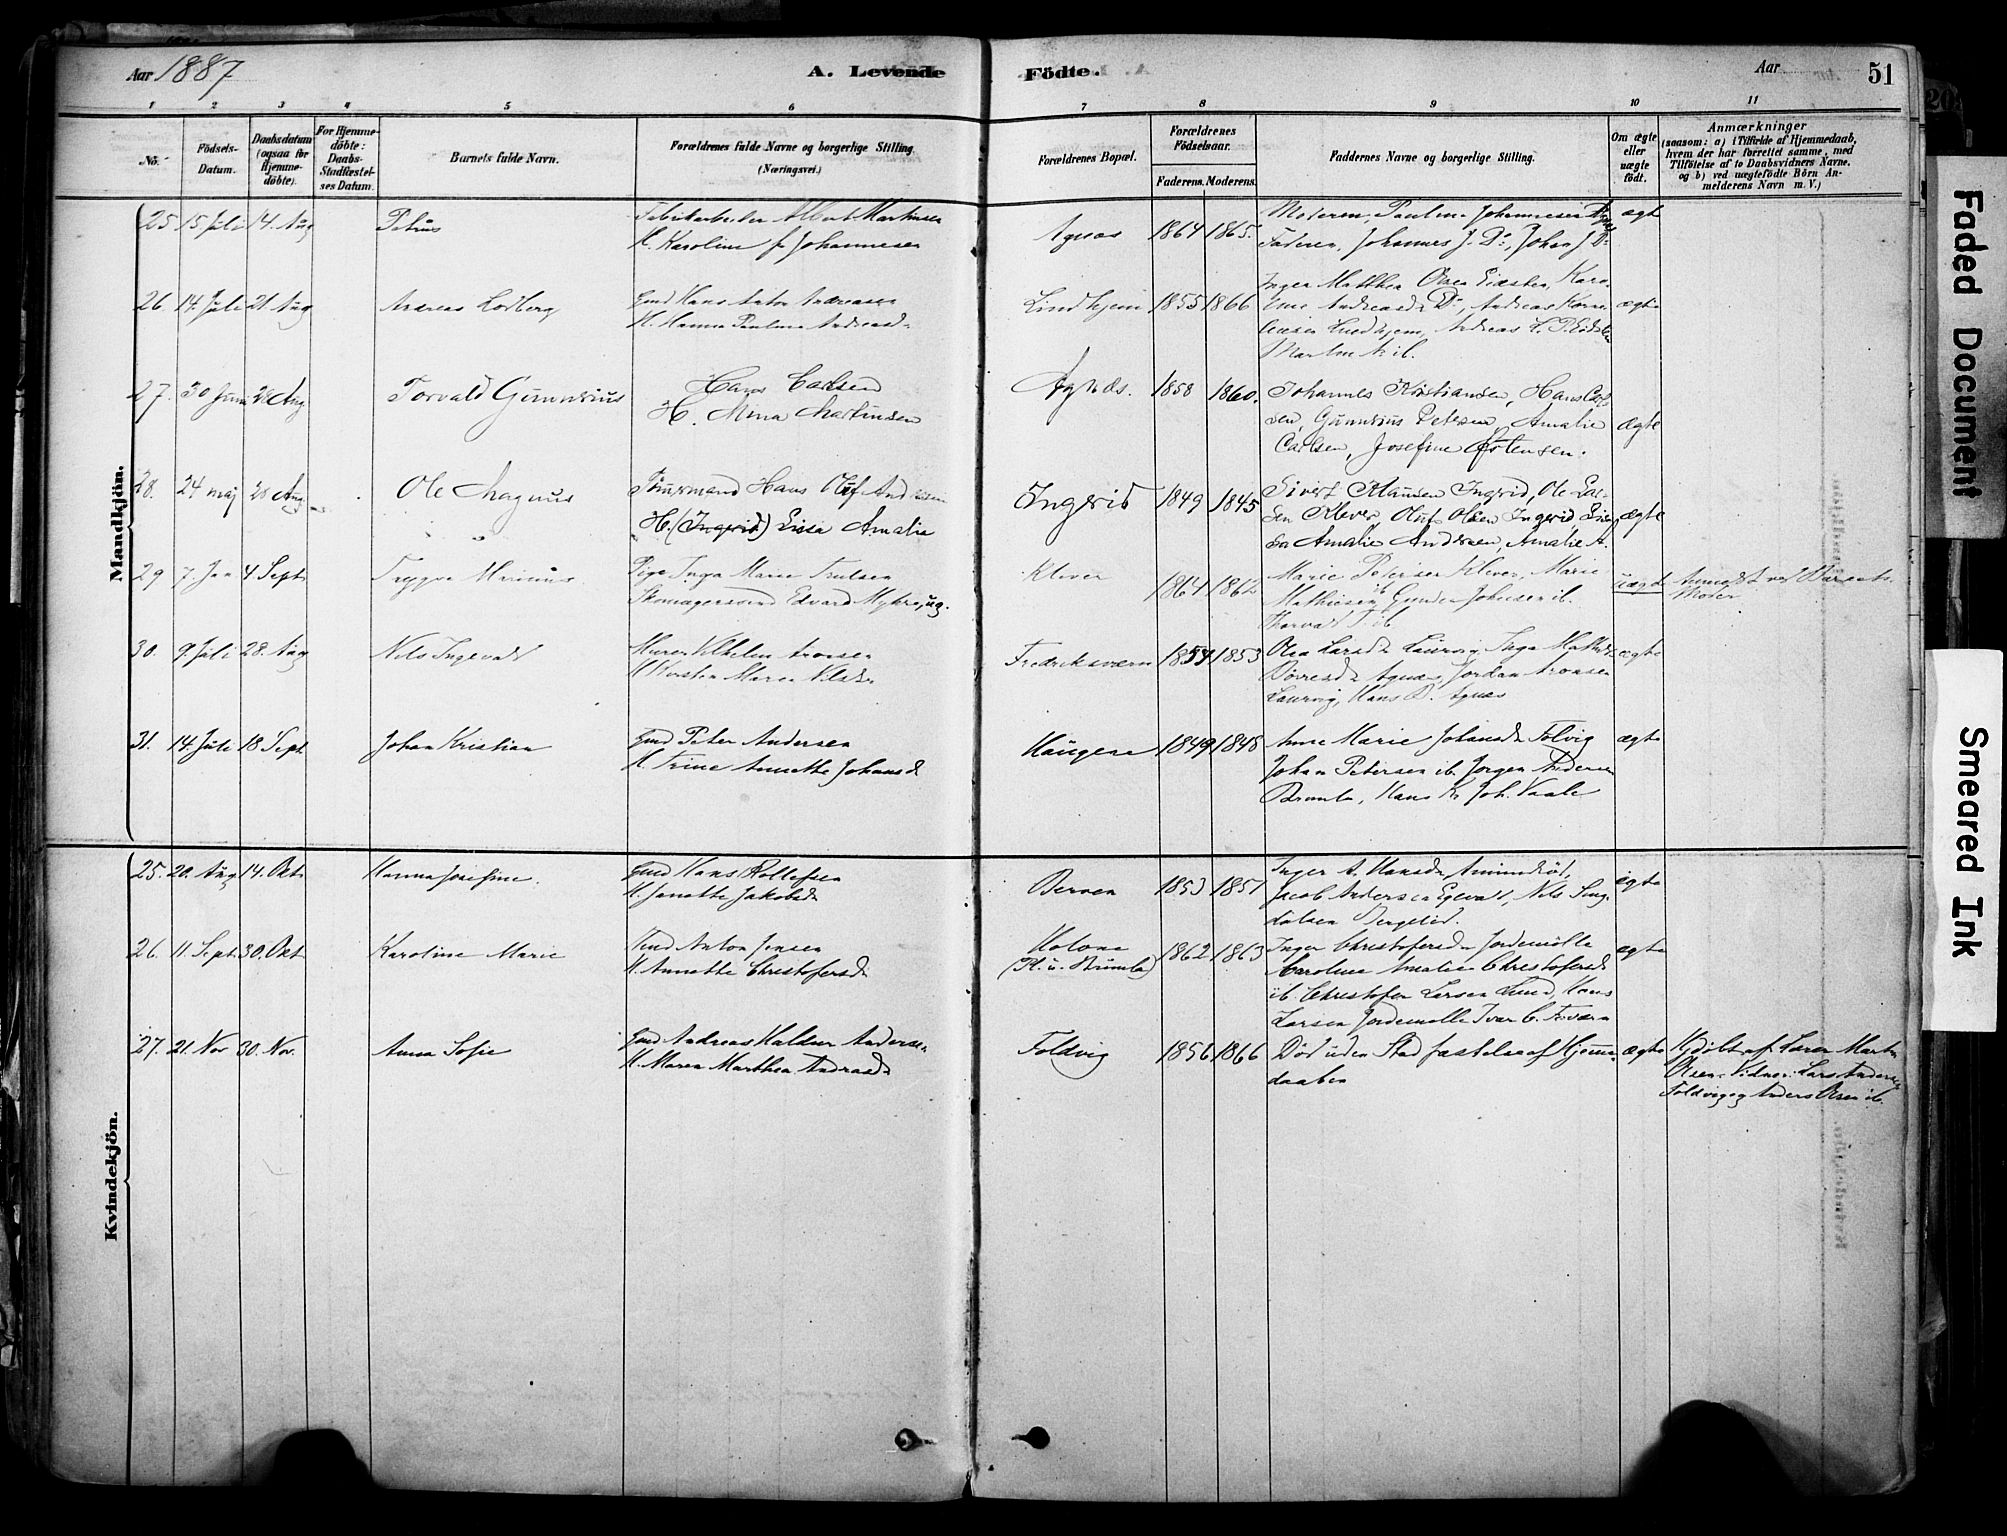 Aar 1887
A. Levende Födte.
Aar
51
1 2 3 4 5 6 7 8 9 10 11
No.
Födsels-
Datum.
Daabsdatum
(ogsaa for
Hjemme-
döbte).
For Hjemme-
döbte:
Daabs-
Stadfæstel-
ses Datum.
Barnets fulde Navn.
Forældrenes fulde Navne og borgerlige Stilling.
(Næringsvei.)
Forældrenes Bopæl.
Forældrenes
Födselsaar.
Faderens. Moderens.
Faddernes Navne og borgerlige Stilling.
Om ægte
eller
uægte
födt.
Anmærkninger
(saasom: a) i Tilfælde af Hjemmedaab,
hvem der har forrettet samme, med
Tilföielse af to Daabsvidners Navne,
og b) ved uægtefödte Börn An-
melderens Navn m. V.)
Mandkjön.
25 15 Juli 14. Aug
Petrus
Fabrikarbeider Albert Martinsen
H. Karoline f. Johannesen
Agnæs 1864 1865.
Moderen, Pauline Johannesen
Faderen, Johannes J. Do, Johan J. Do
ægte
26 14. Juli 21. Aug
Andreas Lodberg
Gmd Hans Anton Andreasen
H. Hanna Pauline Andreasd.
Lindhjem 1855 1866
Inger Mathea Olsen
Andreasd. Do, Andreas
Lindhjem, Andreas
Martin ib.
ægte
27. 30 Juni 28 Aug.
Torvald Gunnerius
Hans Carlsen
H. Mina Martinsen
Agnæs. 1858 1860.
Johannes Kristiansen, Hans Carl-
sen, Gunnerius Petersen, Amalie
Carlsen, Josefine Østensen.
ægte
28. 24 maj 28 Aug.
Ole Magnus
Tömrmand Hans Oluf Andersen
H. (Ingerid) Lissa Amalia
Ingerid 1849 1845
Sivert Klausen Ingerid, Ole Lar-
sen Klever, Oluf Olsen Ingerid, Lis-
sa Amalie Andersen, Amalie A.
ægte
29 7. Jan 4. Sept
Trygve Marinius
Pige Inga Marie Trulsen
Skomagersvend Edvard Myhre, ug.
Klever 1864 1862
Marie Petersen Klever, Marie
Mathiesen ib Johnsen ib.
Thorvald T. ib
uægte
Anmeldt ved Barnets
Moder
30. 9. Juli 28. Aug
Nils Ingevald
Murer Vilhelm Aronsen
H. Marie Nilsdr
Fredriksværn 1854 1853
Olea Larsdr Laurvig, Inga Mathilde
Agnæs, Jordan Aronsen
Laurvig, Hans B. Agnæs
ægte
31. 14. Juli 18 Sept
Johan Kristian
Gmd Peter Andersen
H. Trine Annette Johansd
Haugene 1849 1848
Anne Marie Johansdr Tolvig
Johan Petersen ib. Jørgen Andersen
Brumla, Hans Kr. Joh. Vaale
ægte
Kvindekjön.
25. 20. Aug 14. Okt
Hanna Josefine.
Gmd Hans Rollefsen
H. Janette Jakobsdr
Berven 1853 1851
Inger A. Hansdr Amundröd,
Jacob Andersen Egevald, Nils
Bergelid.
ægte
26. 11. Sept. 30. Okt.
Karoline Marie
Anton Jensen
H. Annette Christofersdr
(H. u. Brumla) 1862 1863
Inger Christofersdr Jordemölle
Caroline Amalie Christofersd
ib Christofer Larsen Lund, Hans
Larsen Jordemølle Ivar C. Fr.værn
ægte
27. 21. Nov 30. Nov.
Anna Sofie
Gmd Andreas Andersen
H. Maren Marthea Andreasdr
Foldvig 1856 1866
Död uden Stadfæstelse af Hjemme-
daaben
ægte
Hjdøbt af Lærer Martin
Olsen. Vidner: Lars Andersen
Foldvig og Anders Olsen ib.
Faded Document
Smeared Ink